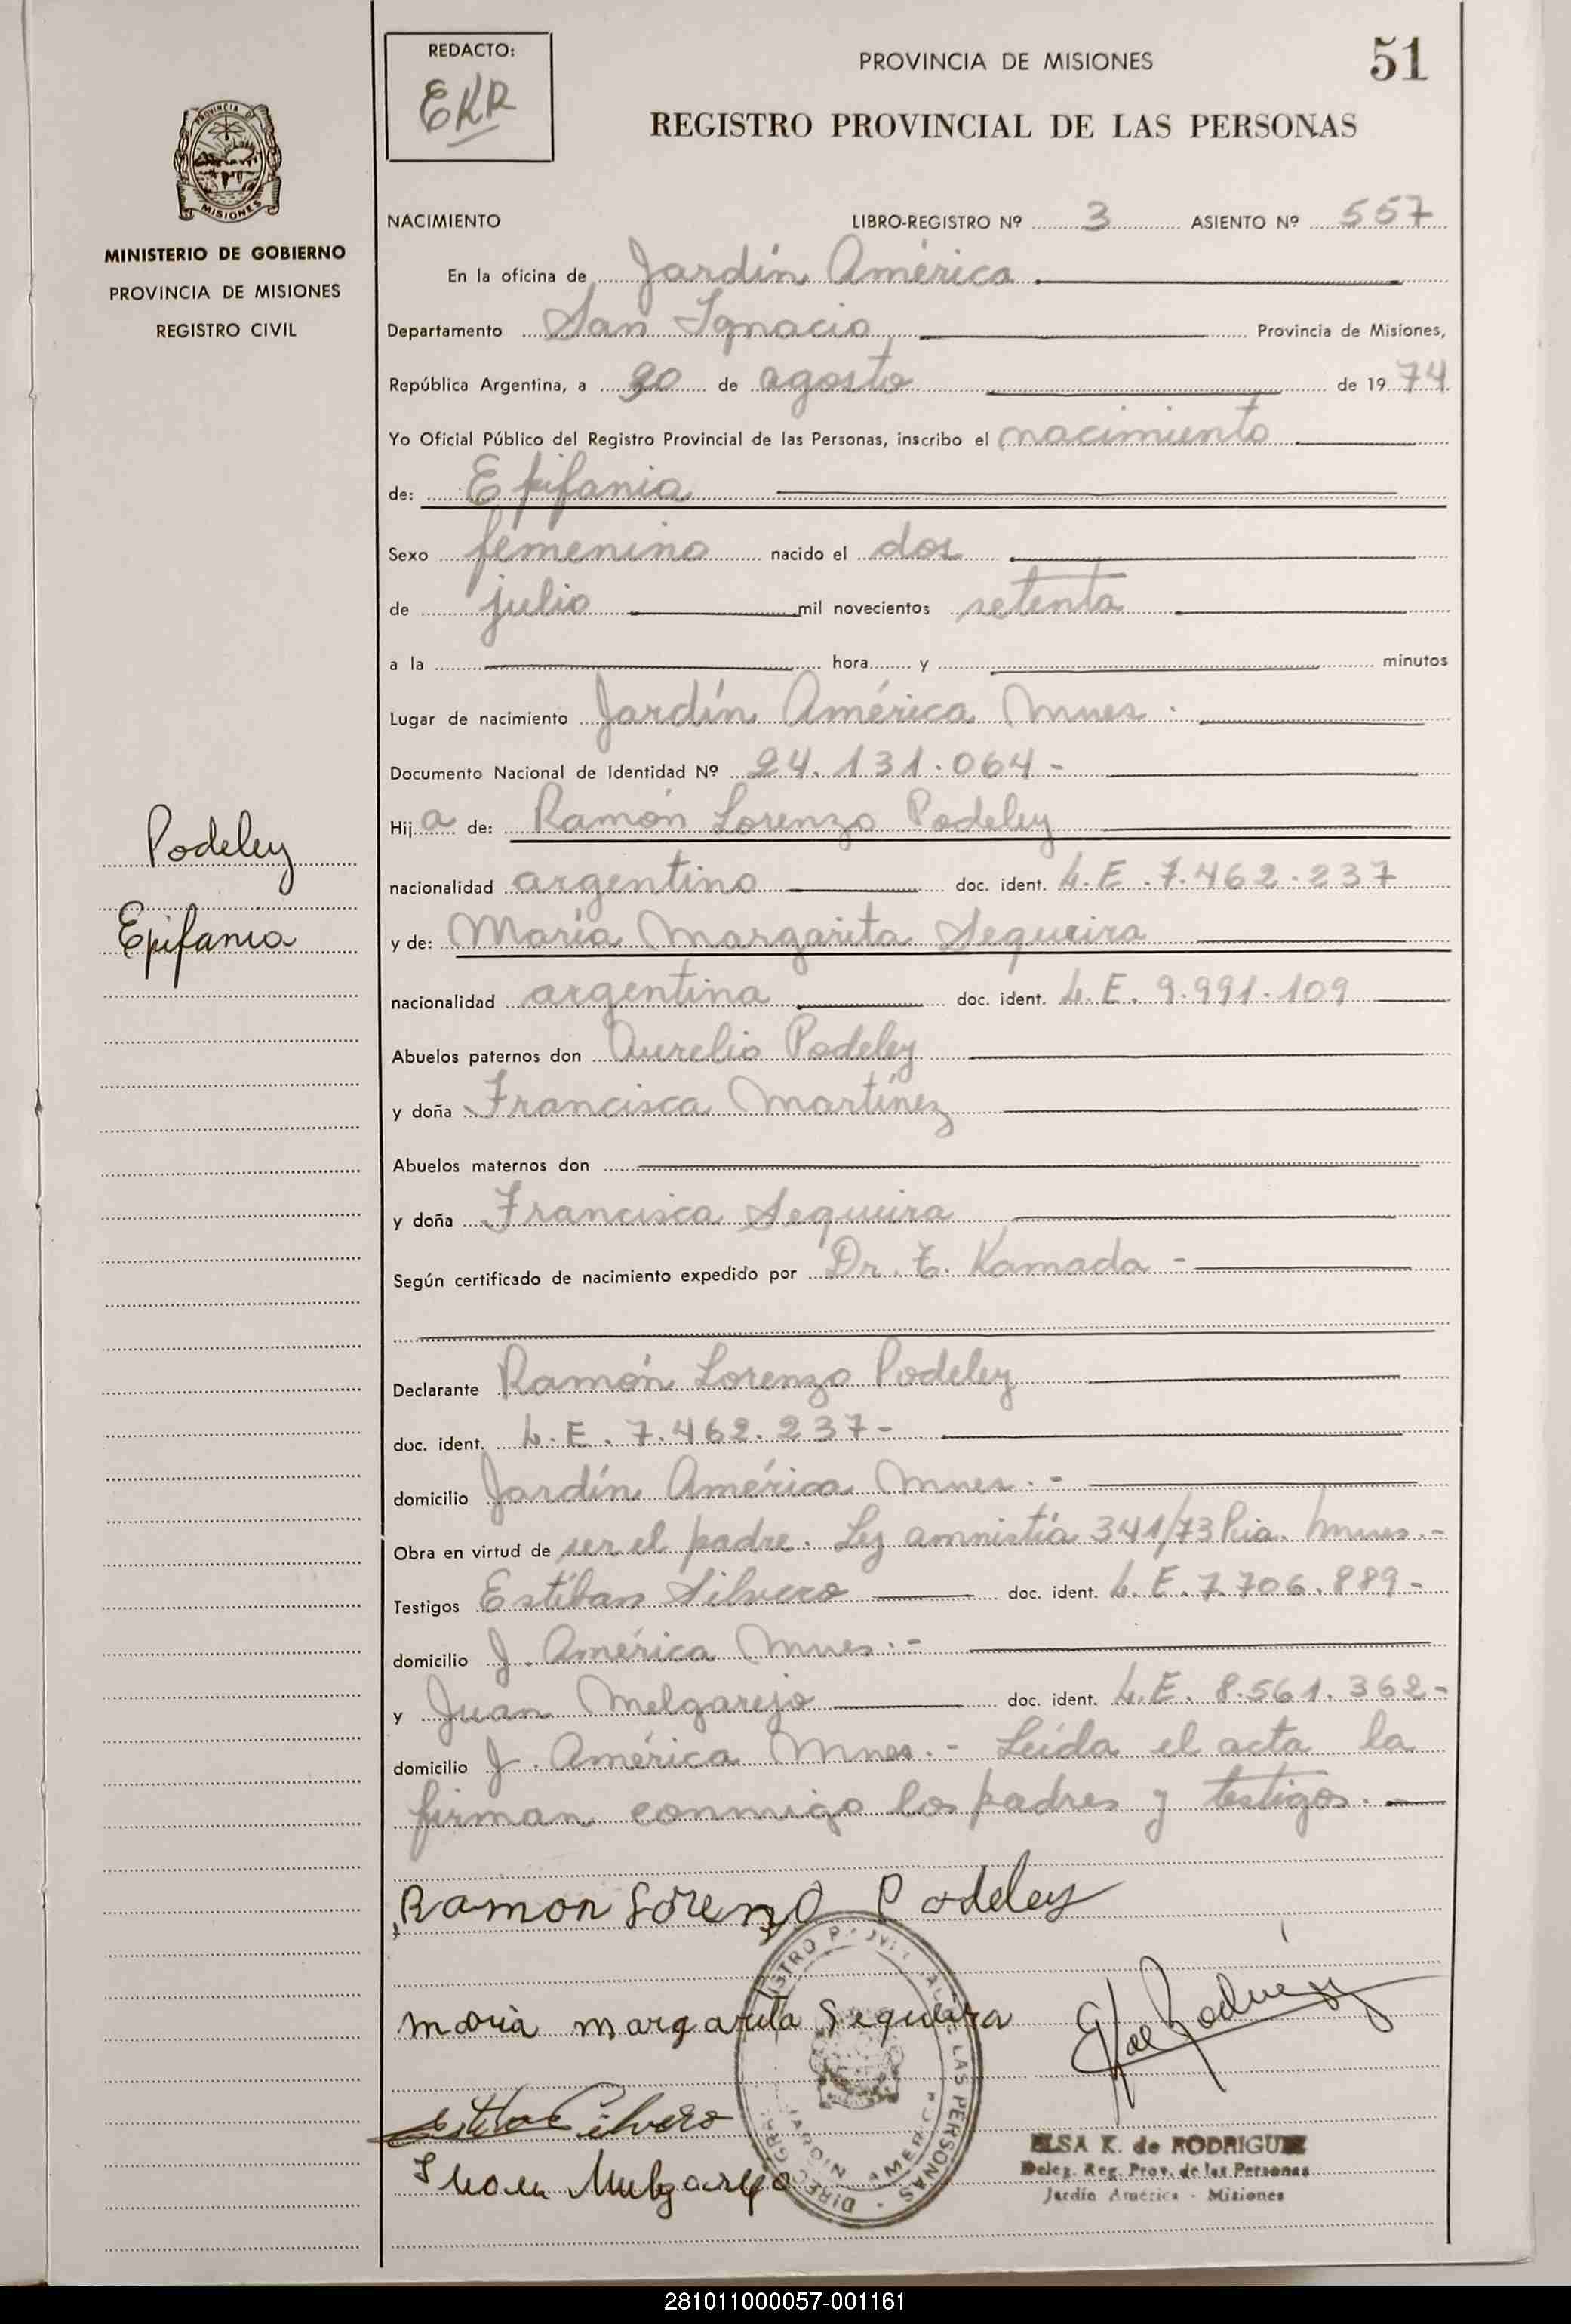 REDACTO:
EKR
PROVINCIA DE MISIONES
51
REGISTRO PROVINCIAL DE LAS PERSONAS
PROVINCIA DE
MISIONES
MINISTERIO DE GOBIERNO
PROVINCIA DE MISIONES
REGISTRO CIVIL
NACIMIENTO LIBRO-REGISTRO Nº 3 ASIENTO Nº 557
En la oficina de Jardín América
Departamento San Ignacio Provincia de Misiones,
República Argentina, a de agosto de 1974
Yo Oficial Público del Registro Provincial de las Personas, inscribo el nacimiento
de: Epifania
Sexo femenino nacido el dos
de julio mil novecientos setenta
a la hora y minutos
Lugar de nacimiento Jardín América Mnes.
Documento Nacional de Identidad Nº 24.131.064-
Hija de: Ramón Lorenzo Podeley
nacionalidad argentino doc. ident. L.E. 7.462.237
y de: María Margarita Sequeira
nacionalidad argentina doc. ident. L.E. 9.991.109
Abuelos paternos don Aurelio Podeley
y doña Francisca Martínez
Abuelos maternos don
y doña Francisca Sequeira
Según certificado de nacimiento expedido por Dr. T. Kamada -
Declarante Ramón Lorenzo Podeley
doc. ident. L.E. 7.462.237-
domicilio Jardín América Mnes.-
Obra en virtud de ser el padre. Ley amnistía 341/73 Pcia. Mnes.-
Testigos Estéban Silvero doc. ident. L.E. 7.706.889-
domicilio J. América Mnes.-
y Juan Melgarejo doc. ident. L.E. 8.561.362-
domicilio J. América Mnes.- Leída el acta la
firman conmigo los padres y testigos.-
Podeley
Epifania
Ramon Lorenzo Podeley
maria margarita Sequeira
Silvero
Juan Melgarejo
LAS PERSONAS
JARDIN AMERICA
ELSA K. de RODRIGUEZ
Deleg. Reg. Prov. de las Personas
Jardín América - Misiones
281011000057-001161